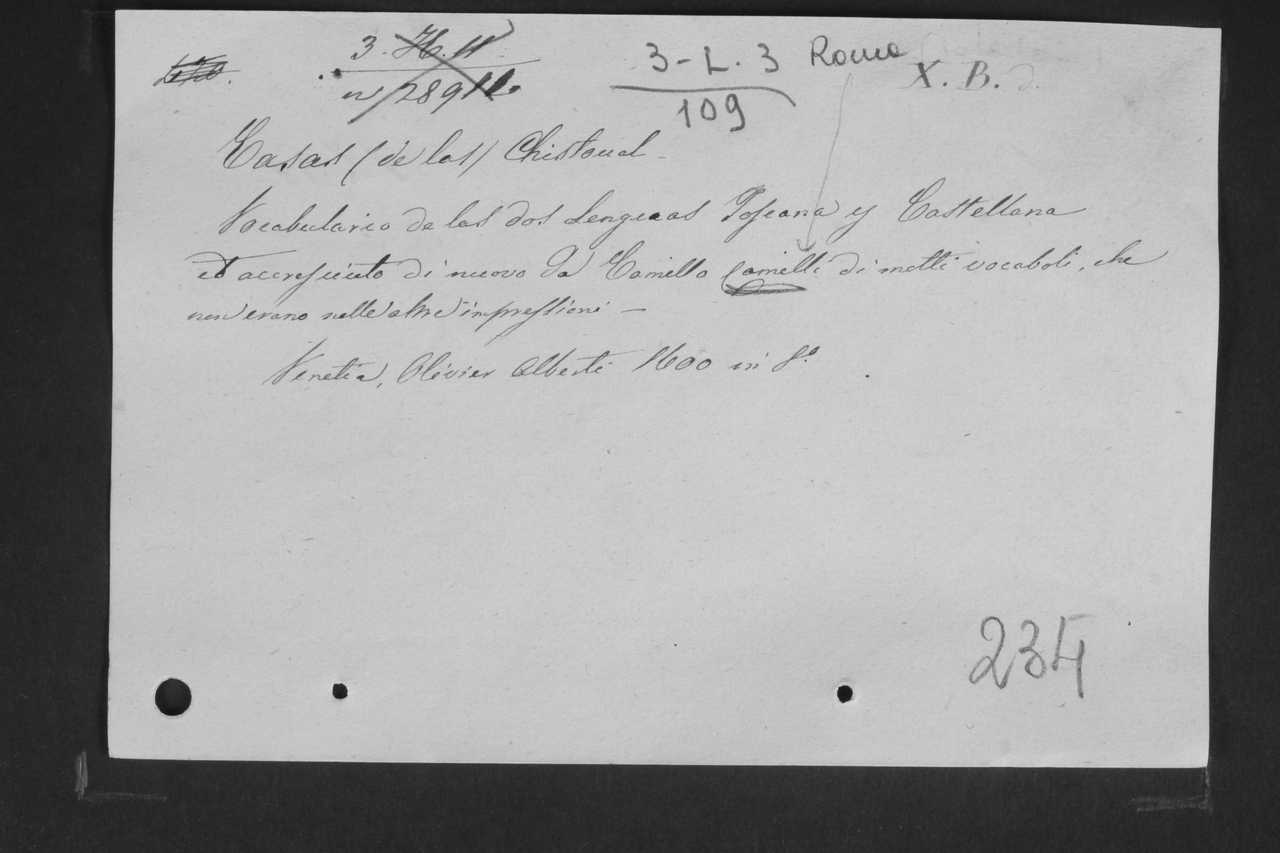 3. H. 11
n 289
3-L. 3 Roma
109
X. B.
Casas (de las) Christoval
Vocabulario de las dos Lenguas Toscana y Castellana
et accresciuto di nuovo da Camillo Camilli di molti vocaboli, che
non erano nelle altre impressioni —
Venetia, Olivier Alberti 1600 in 8.º
234